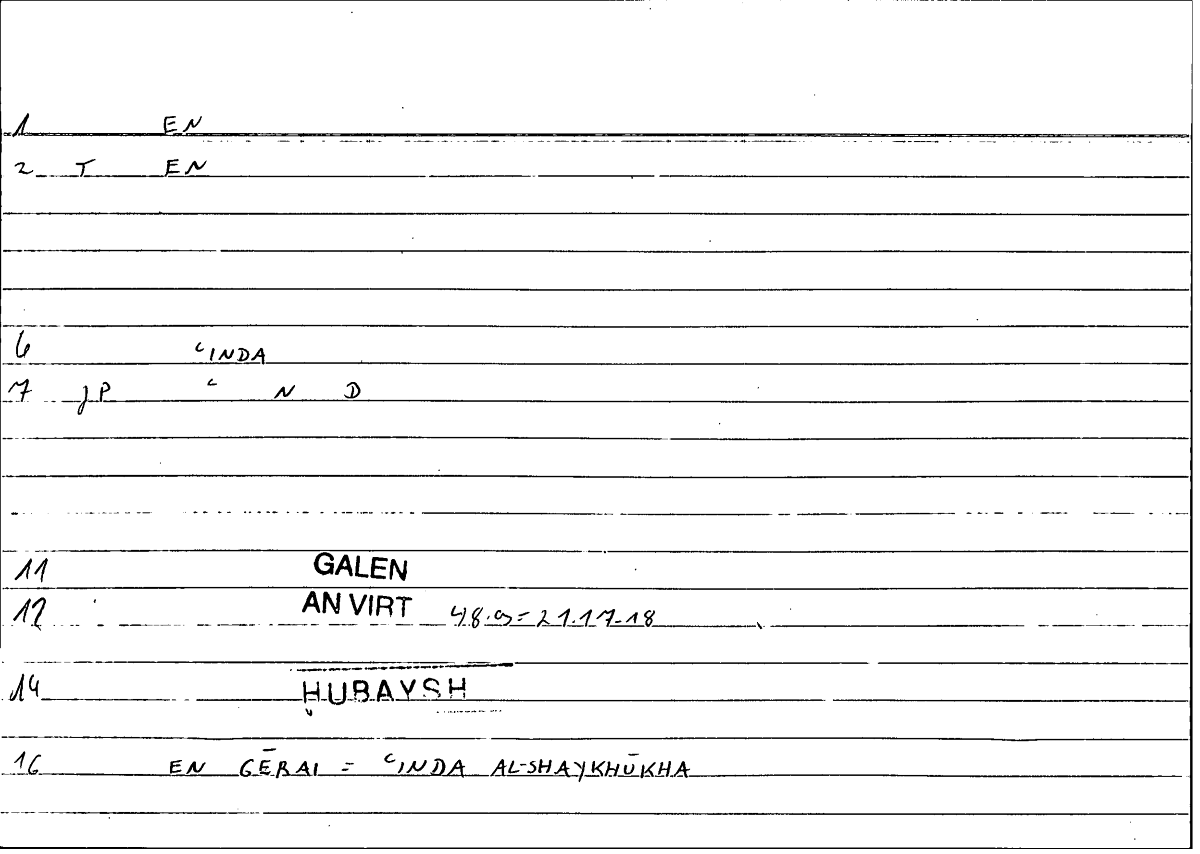 1 EN
2 T EN
6 ʿINDA
7 JP ʿ N D
11 GALEN
12 AN VIRT 48.9=21.17-18
14 ḤUBAYSH
16 EN GĒRAI = ʿINDA AL-SHAYKHŪKHA